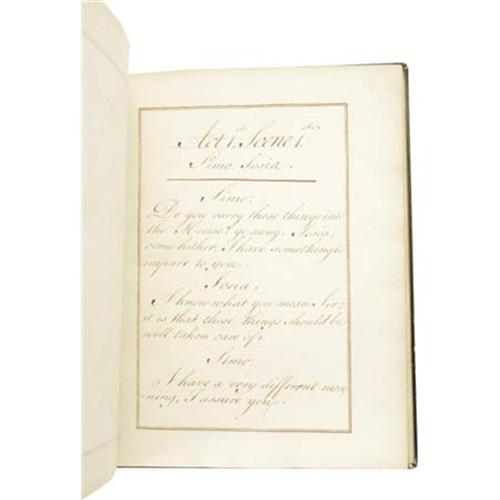 Act 1st Scene 1st
Simo, Sosia.
Simo:
Do you carry these things into
the House: go away. Sosia,
come hither, I have something to
impart to you.
Sosia.
I know what you mean Sir;
it is that these things should be
well taken care of.
Simo.
I have a very different mea=
=ning, I assure you.